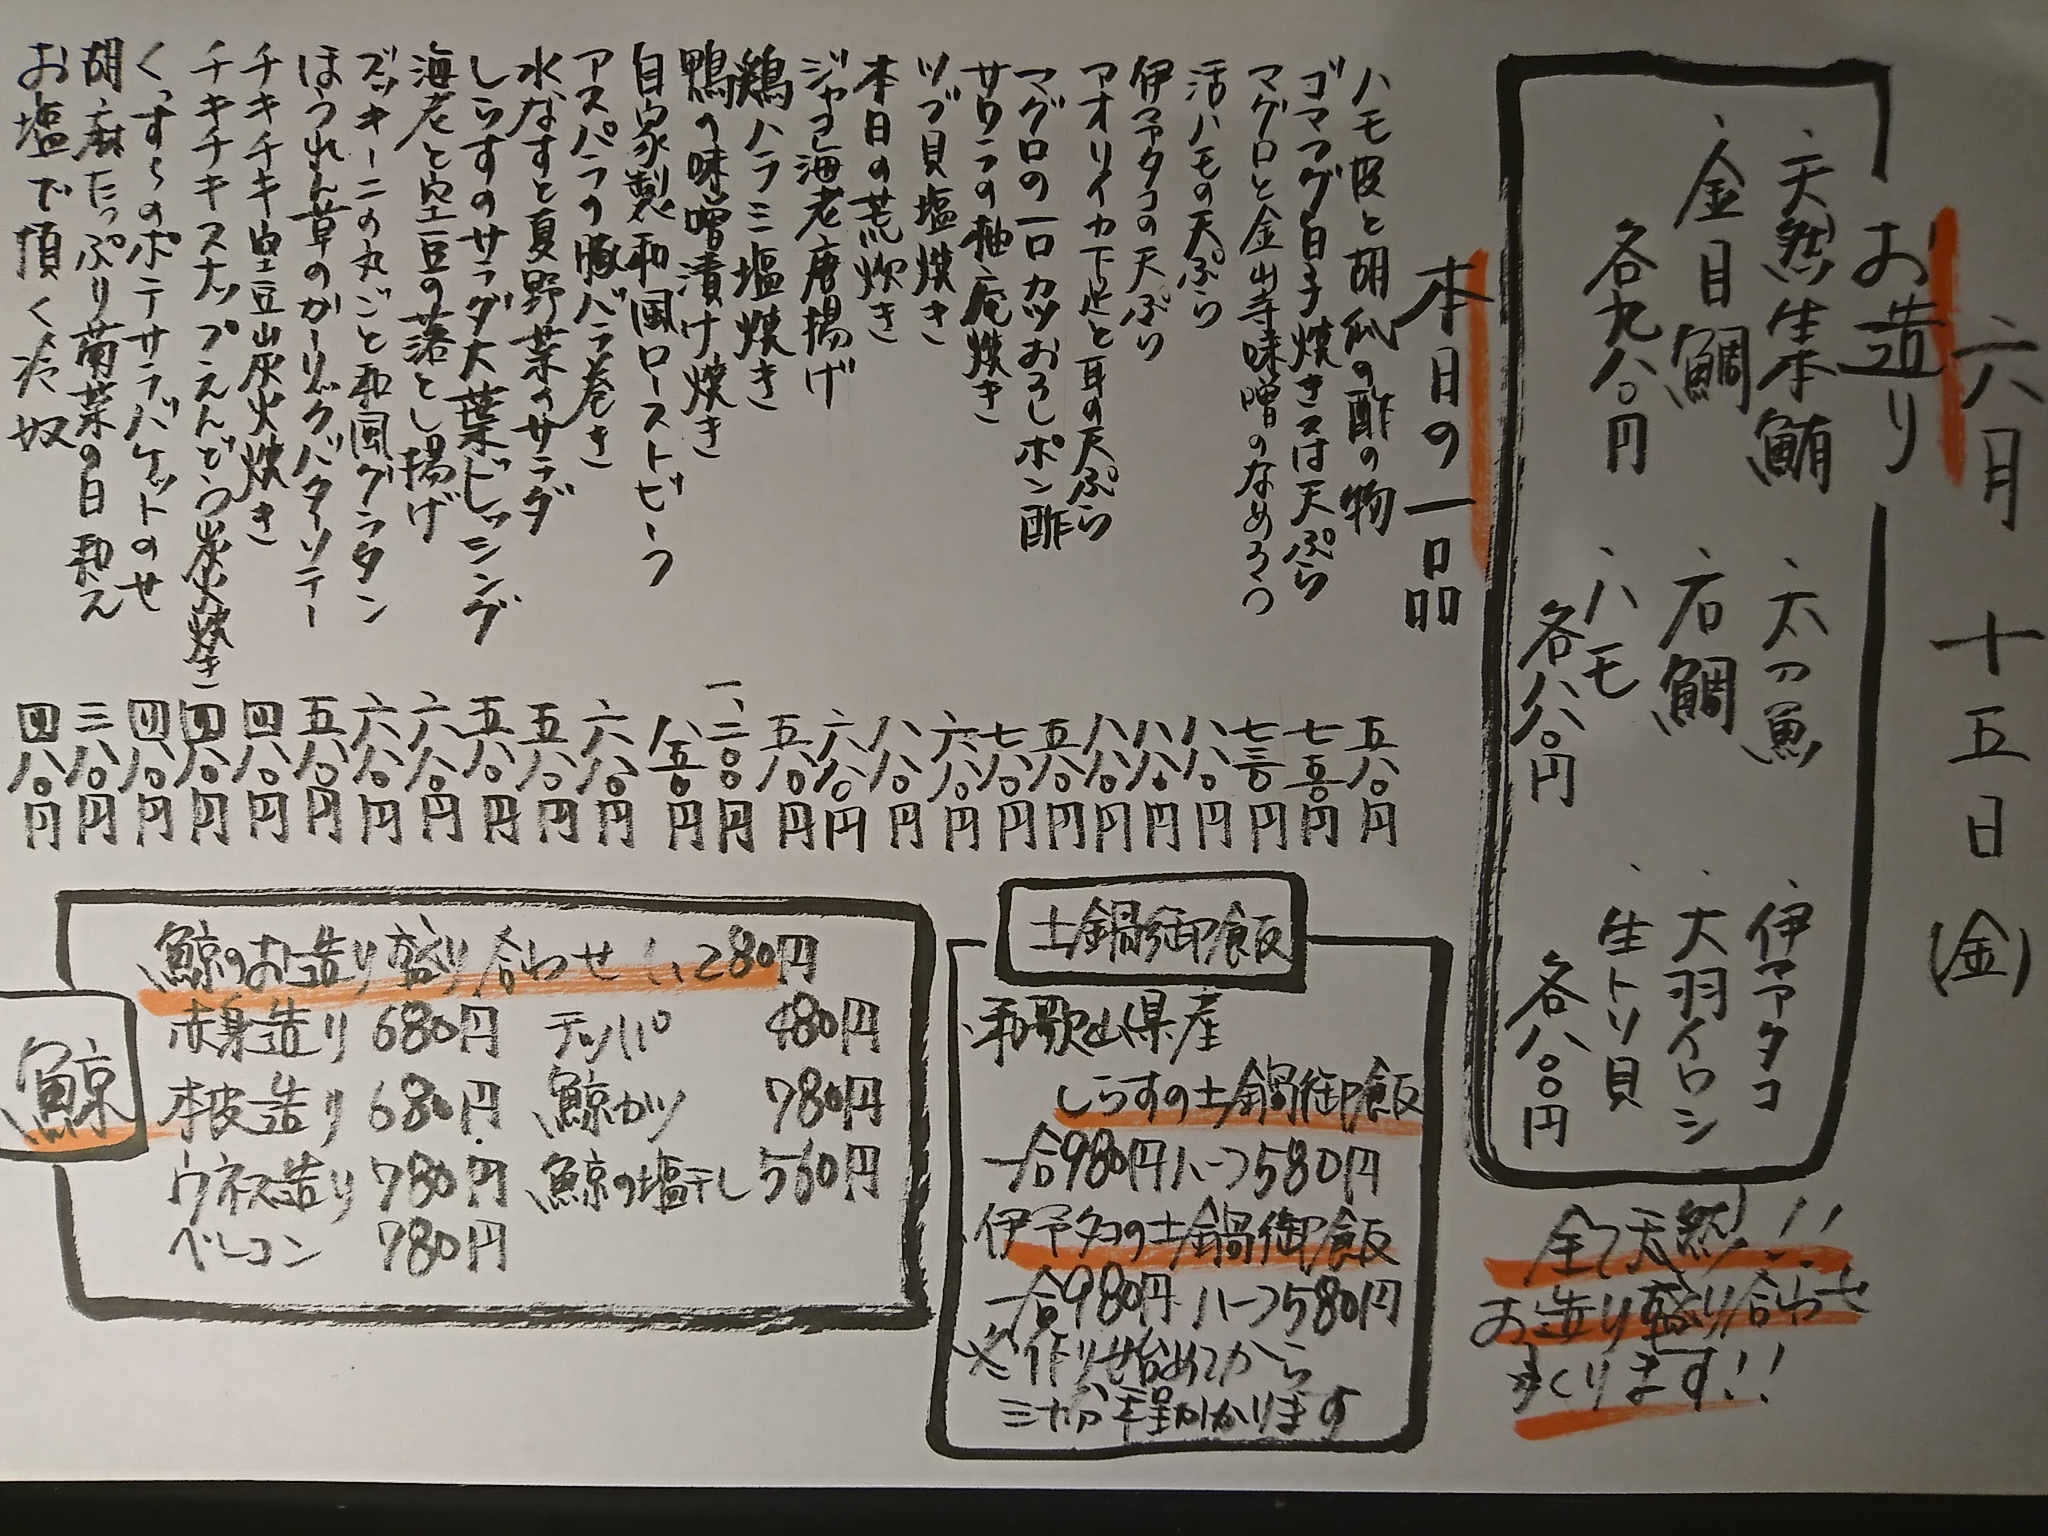 六月十五日(金)
お造り
・天然生本鮪
・太刀魚
・伊予タコ
・金目鯛
・石鯛
・大羽イワシ
各九八〇円
・ハモ
各八八〇円
・生トリ貝
各八〇〇円
全て天然!!
お造り盛り合わせ
承ります!!
本日の一品
ハモ皮と胡瓜の酢の物 五八〇円
ゴマフグ白子焼き又は天ぷら 七五〇円
マグロと金山寺味噌のなめろう 七三〇円
活ハモの天ぷら 八八〇円
伊予タコの天ぷら 八八〇円
アオリイカ下足と耳の天ぷら 八八〇円
マグロの一口カツおろしポン酢 五八〇円
サワラの柚庵焼き 七八〇円
ツブ貝塩焼き 六八〇円
本日の荒炊き 八八〇円
ジャコ海老唐揚げ 六八〇円
鶏ハラミ塩焼き 五八〇円
鴨の味噌漬け焼き 一、二〇〇円
自家製和風ローストビーフ 八五〇円
アスパラの豚バラ巻き 六八〇円
水なすと夏野菜のサラダ 五八〇円
しらすのサラダ大葉ドレッシング 五八〇円
海老と空豆の落とし揚げ 六八〇円
ズッキーニの丸ごと和風グラタン 六八〇円
ほうれん草のガーリックバターソテー 五八〇円
チキチキ空豆炭火焼き 四八〇円
チキチキスナップえんどう炭火焼き 四八〇円
くんすらのポテサラバケットのせ 四八〇円
胡麻たっぷり菊菜の白和え 三八〇円
お塩で頂く冷奴 四八〇円
土鍋御飯
和歌山県産
しらすの土鍋御飯
一合980円ハーフ580円
伊予タコの土鍋御飯
一合980円ハーフ580円
※作り始めてから
三十分程かかります
鯨
鯨のお造り盛り合わせ 1,280円
赤身造り 680円 テッパ 480円
本皮造り 680円 鯨カツ 780円
ウネス造り 780円 鯨の塩干し 560円
ベーコン 780円